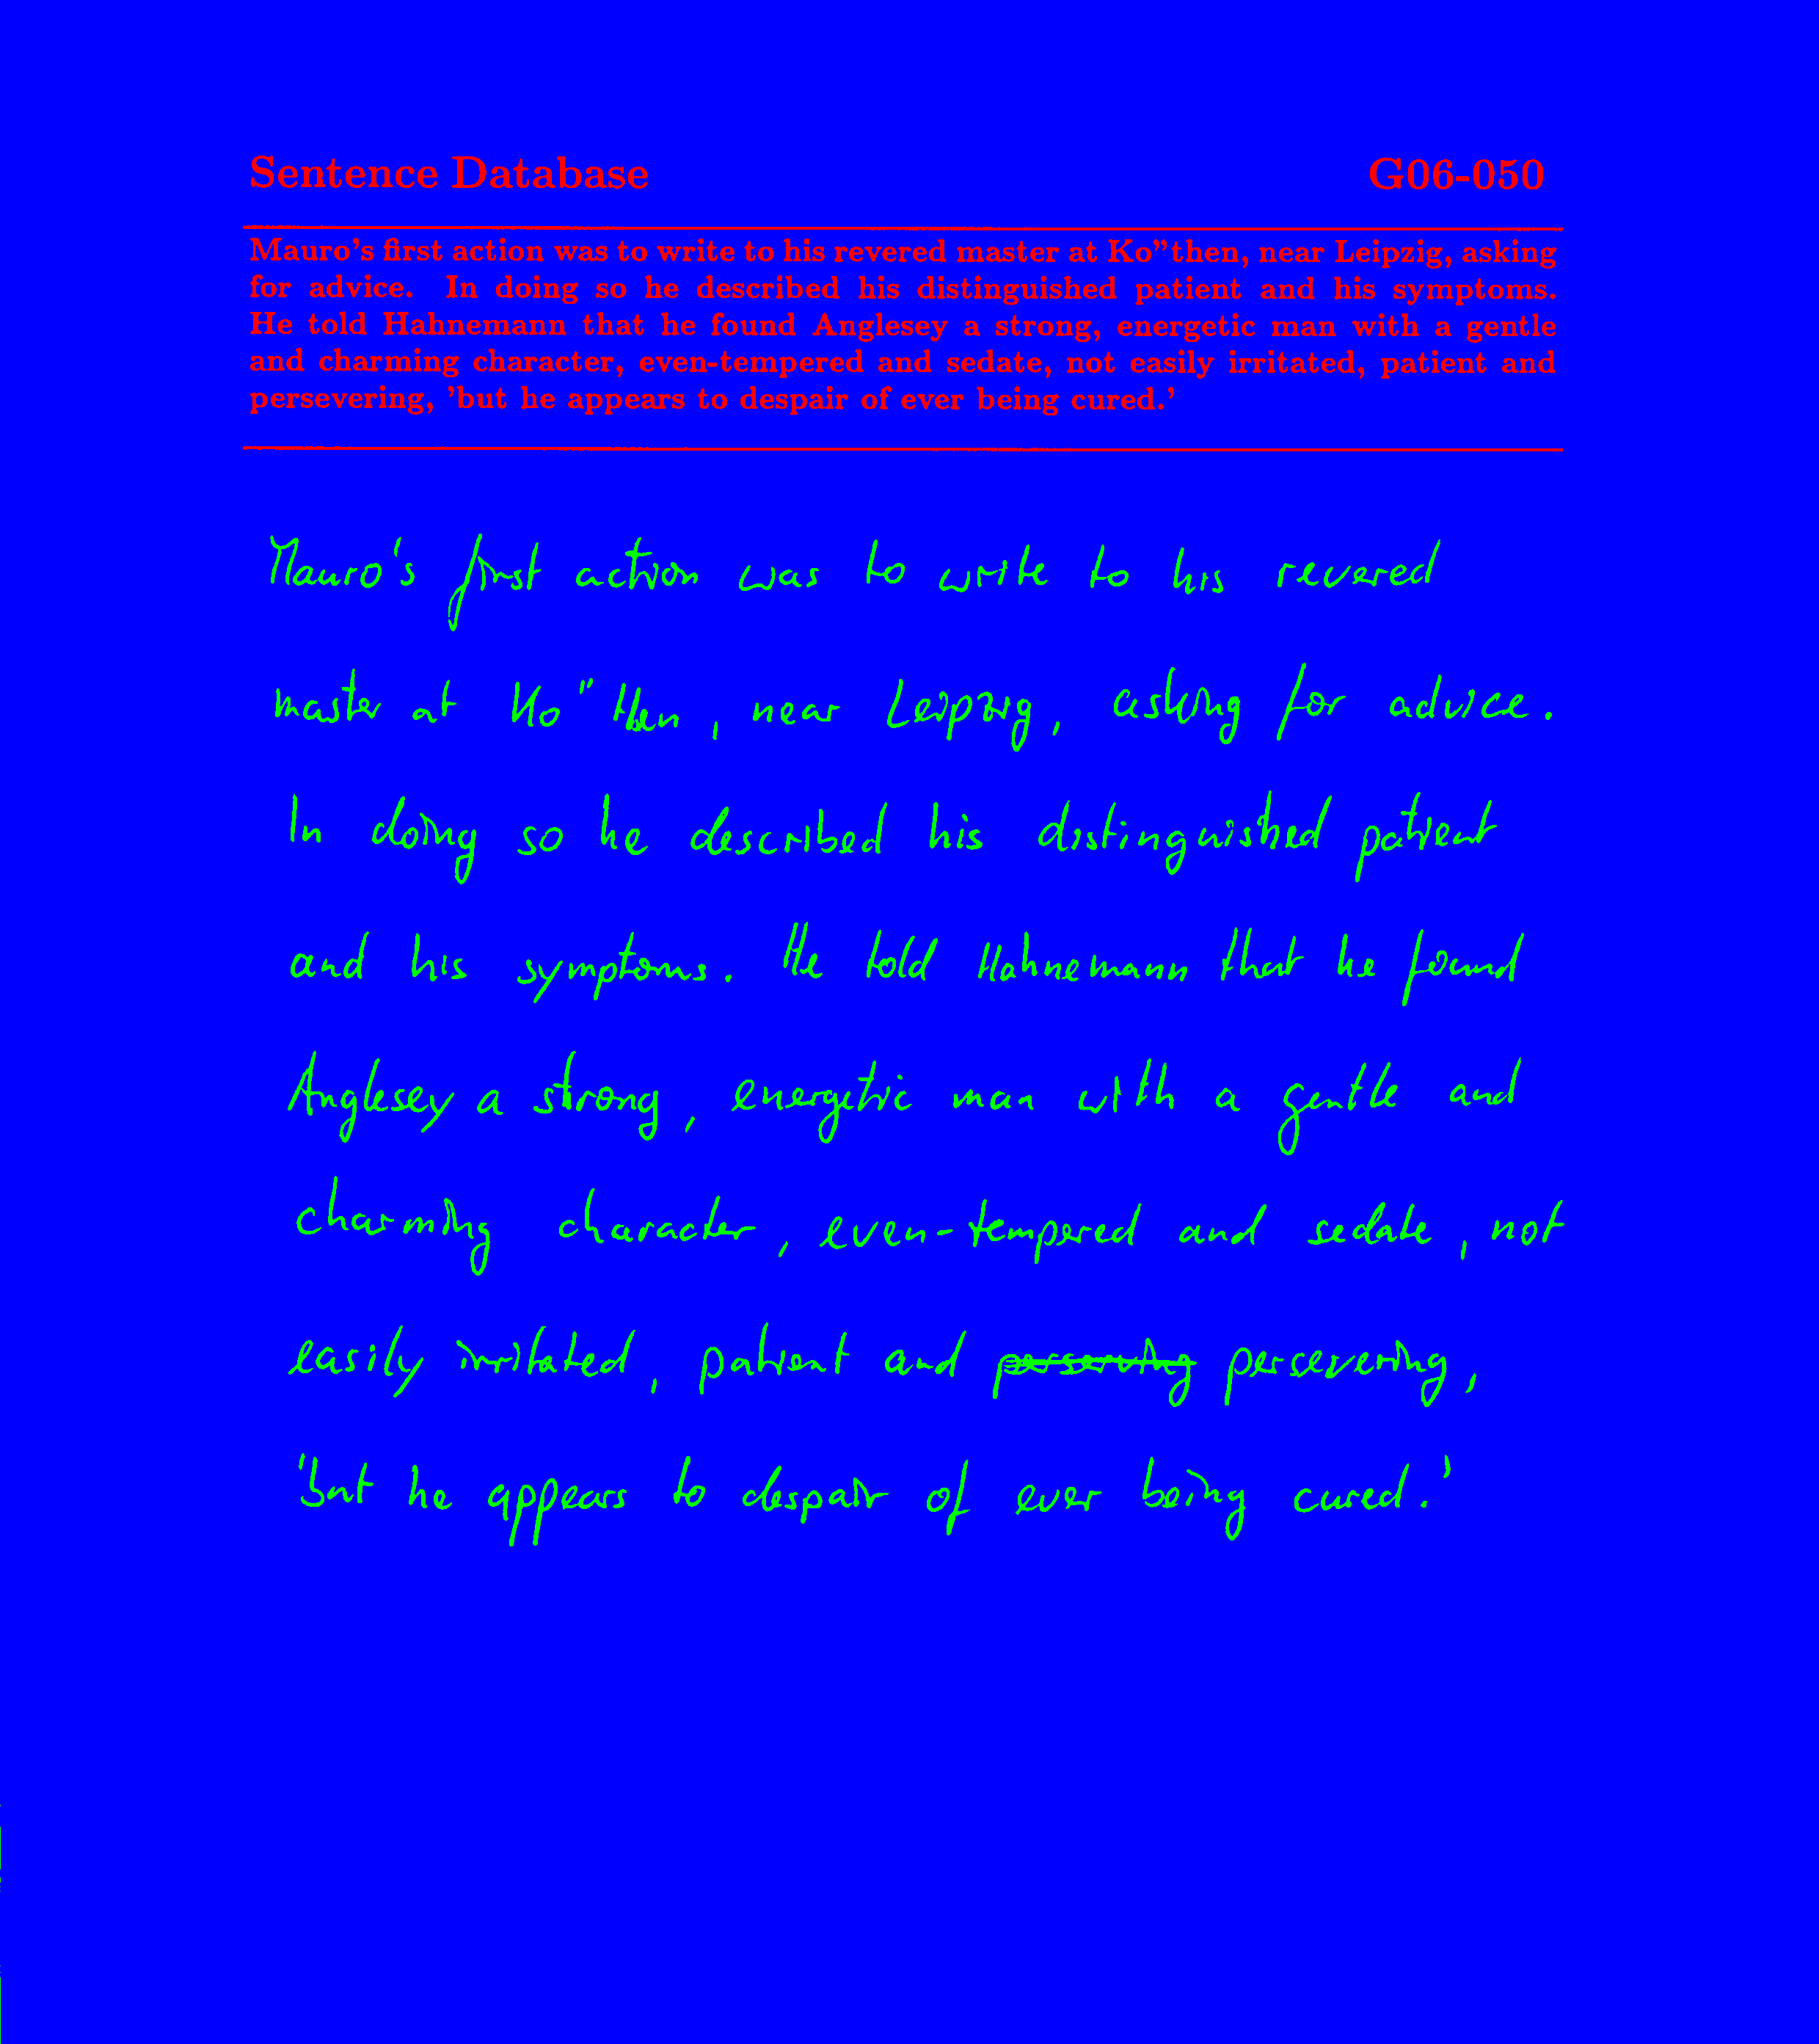 Sentence Database G06-050
Mauro's first action was to write to his revered master at Ko"then, near Leipzig, asking
for advice. In doing so he described his distinguished patient and his symptoms.
He told Hahnemann that he found Anglesey a strong, energetic man with a gentle
and charming character, even-tempered and sedate, not easily irritated, patient and
persevering, 'but he appears to despair of ever being cured.'
Mauro's first action was to write to his revered
master at Ko"then, near Leipzig, asking for advice.
In doing so he described his distinguished patient
and his symptoms. He told Hahnemann that he found
Anglesey a strong, energetic man with a gentle and
charming character, even-tempered and sedate, not
easily irritated, patient and persevering,
'but he appears to despair of ever being cured.'